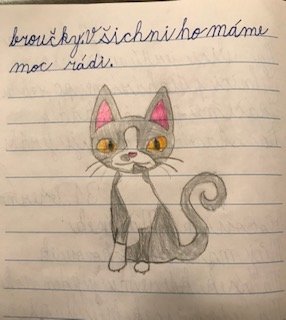 broučky.Všichni ho máme
moc rádi.